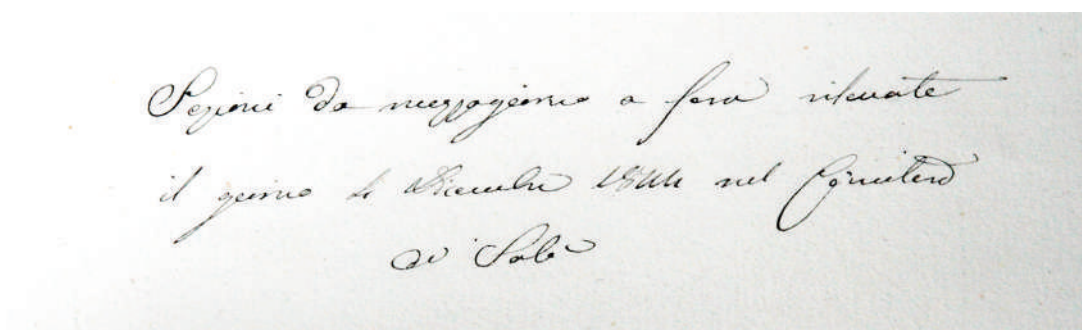 Sezioni da mezzogiorno a sera rilevate
il giorno 4 Dicembre 1844 nel Cimitero
di Salò